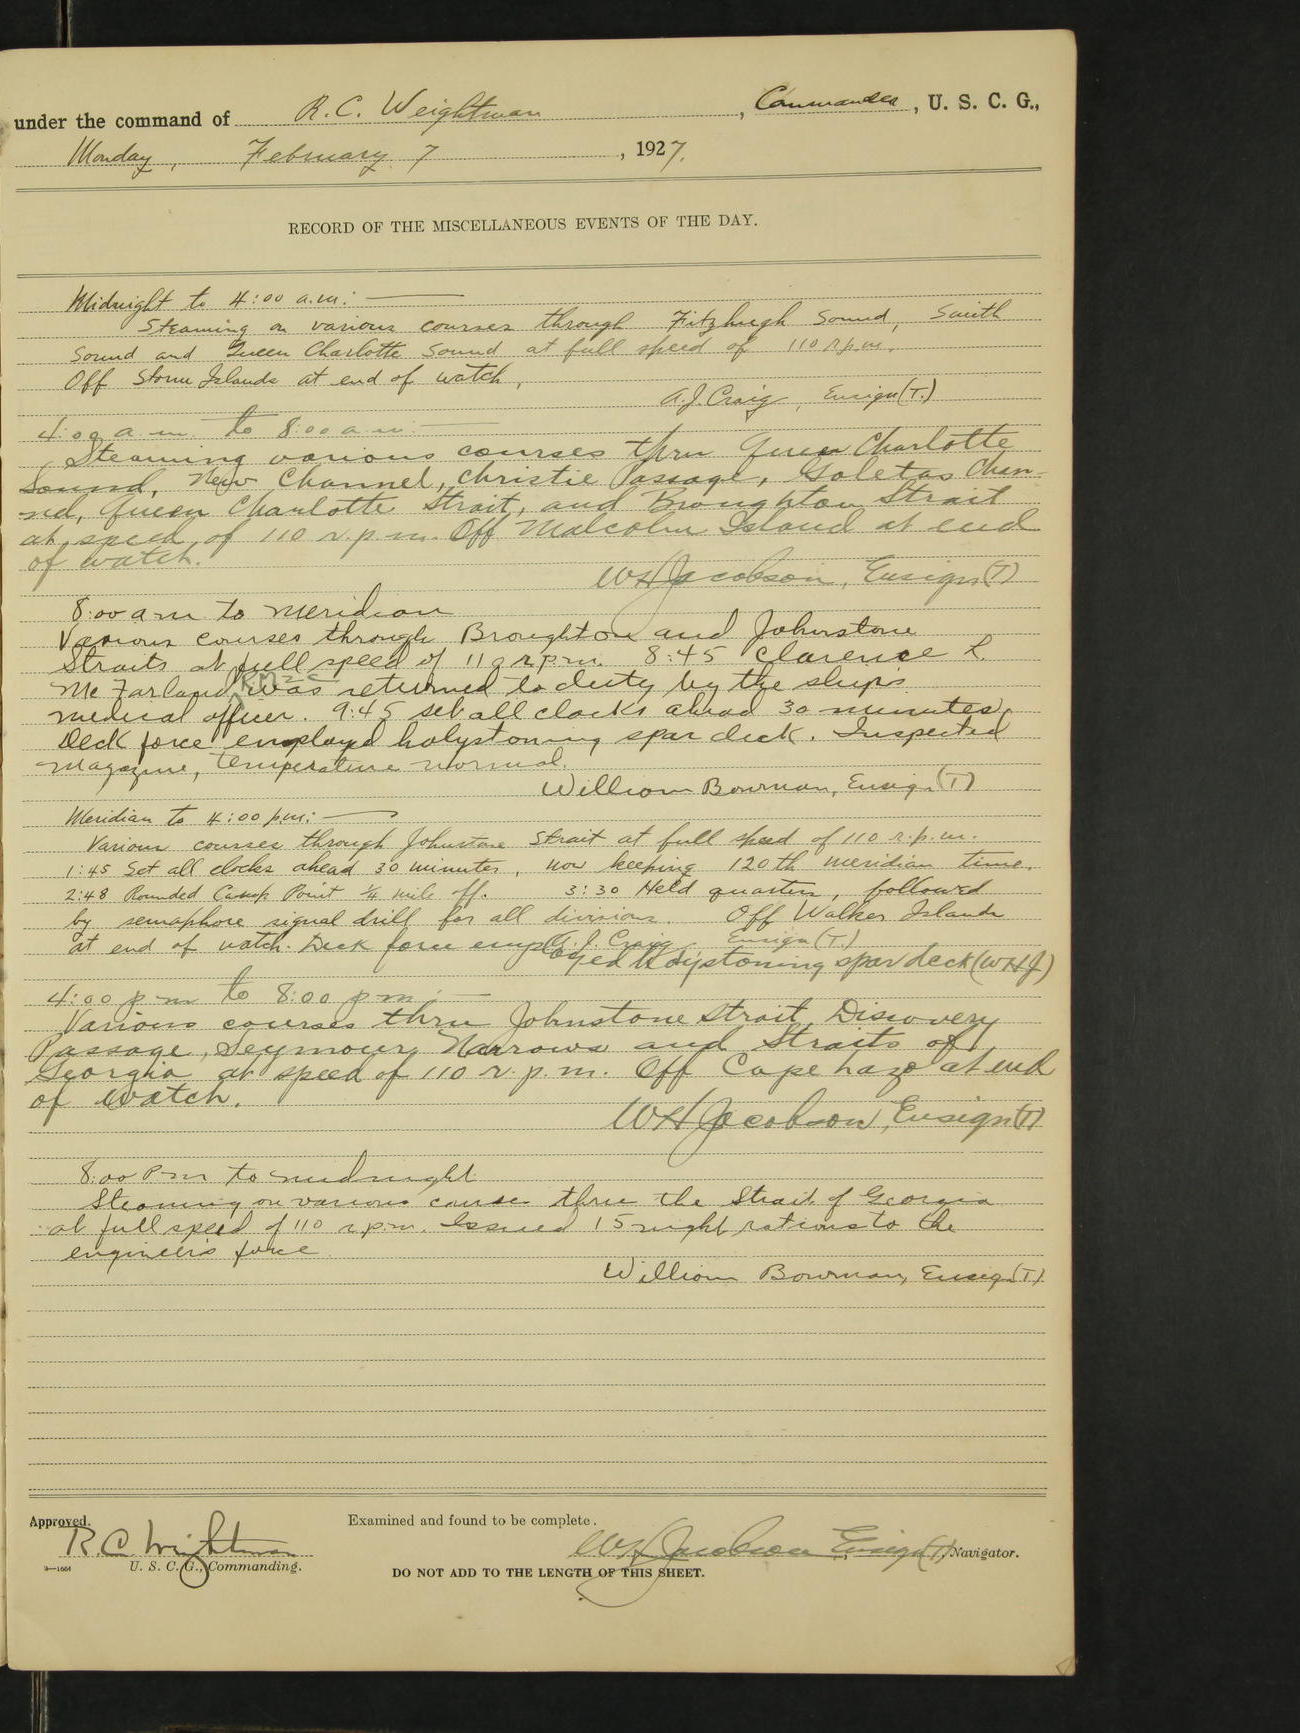 under the command of R. C. Weightman, Commander, U. S. C. G.,
Monday, February 7, 1927.
RECORD OF THE MISCELLANEOUS EVENTS OF THE DAY.
Midnight to 4:00 a.m:
Steaming on various courses through Fitzhugh Sound, Smith
Sound and Queen Charlotte Sound at full speed of 110 r.p.m.
Off Storm Islands at end of watch.
A.J. Craig, Ensign (T.)
4:00 a.m. to 8:00 a.m.
Steaming various courses thru Queen Charlotte
Sound, New Channel, Christie Passage, Goletas Chan-
nel, Queen Charlotte Strait, and Broughton Strait
at speed of 110 r.p.m. Off Malcolm Island at end
of watch.
W H Jacobson, Ensign (T)
8:00 a m to meridian
Various courses through Broughton and Johnstone
Straits at full speed of 110 r.p.m. 8:45 Clarence L.
McFarland was returned to duty by the ship's
medical officer. 9:45 set all clocks ahead 30 minutes.
Deck force employed holystoning spar deck. Inspected
magazine, temperature normal.
William Bowman, Ensign (T)
Meridian to 4:00 p.m:
Various courses through Johnstone Strait at full speed of 110 r.p.m.
1:45 Set all clocks ahead 30 minutes, now keeping 120th meridian time.
2:48 Rounded Camp Point ¼ mile off. 3:30 Held quarters, followed
by semaphore signal drill for all divisions. Off Walker Islands
at end of watch. A. J. Craig Ensign (T.)
Deck force employed holystoning spar deck (WHJ)
4:00 p m to 8:00 p m:
Various courses thru Johnstone Strait, Discovery
Passage, Seymour Narrows and Straits of
Georgia at speed of 110 r.p.m. Off Cape Lazo at end
of watch.
W H Jacobson, Ensign (T)
8:00 P m to midnight
Steaming on various courses thru the Strait of Georgia
at full speed of 110 r.p.m. Issued 15 night rations to the
engineer's force
William Bowman, Ensign (T)
Approved. Examined and found to be complete.
R. C. Weightman W H Jacobson Ensign (T) Navigator.
U. S. C. G., Commanding.
DO NOT ADD TO THE LENGTH OF THIS SHEET.